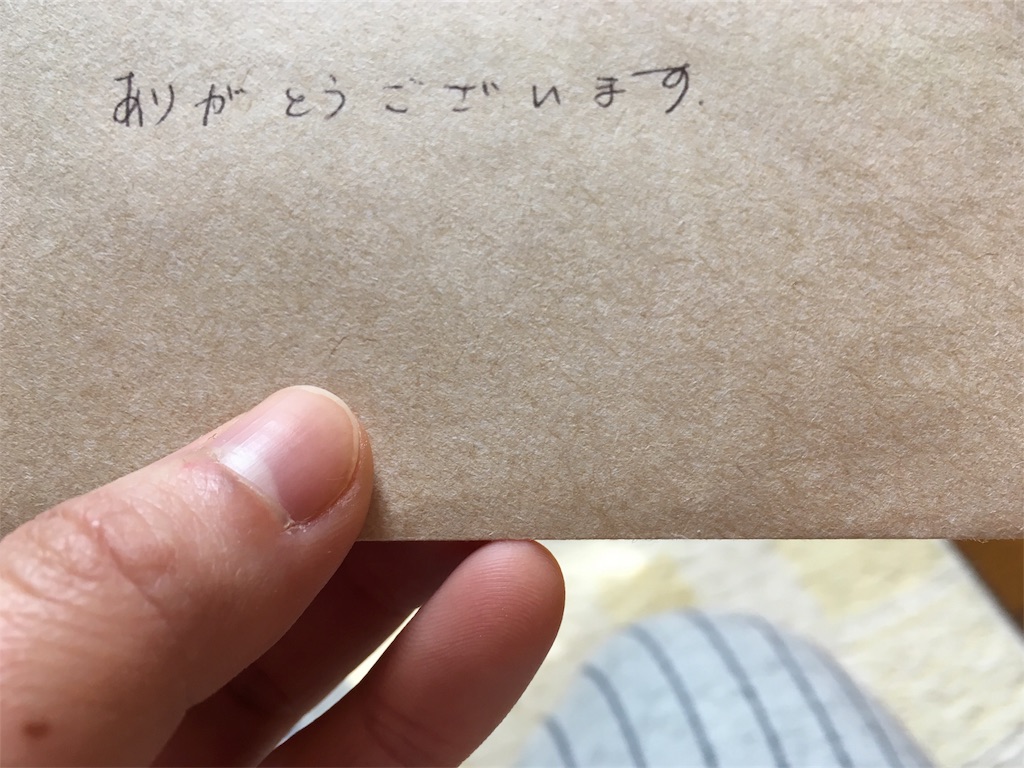 ありがとうございます.